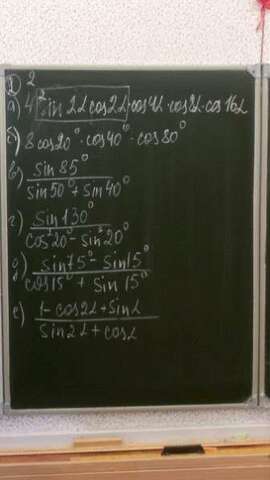 ② 2
а) 4 sin 2α cos2α · cos4α · cos8α · cos 16α
б) 8 cos20° · cos40° · cos80°
в) sin 85° / sin50° + sin 40°
г) sin 130° / cos²20° - sin²20°
д) sin75° - sin15° / cos15° + sin 15°
е) 1 - cos2α + sinα / sin2α + cosα